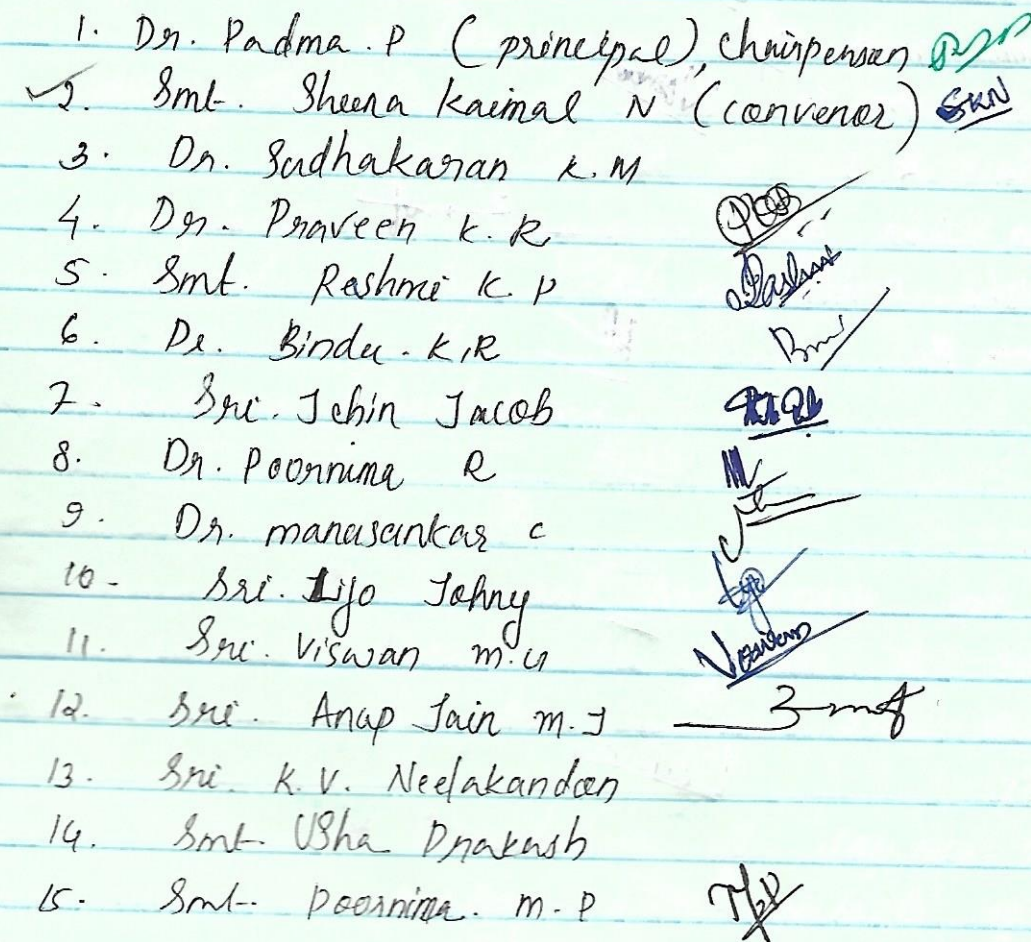 1. Dr. Padma. P (principal), Chairperson
2. Smt. Sheena Kaimal N (convenor) SKN
3. Dr. Sudhakaran K.M
4. Dr. Praveen K.R
5. Smt. Reshmi K.P
6. Dr. Bindu. K.R
7. Sri. Jebin Jacob
8. Dr. Poornima R
9. Dr. manasankar C
10- Sri. Lijo Johny
11. Sri. Viswan m.u
12. Sri. Anap Jain m.J
13. Sri. K.V. Neelakandan
14. Smt. Usha Prakash
15. Smt. Poornima. m.p